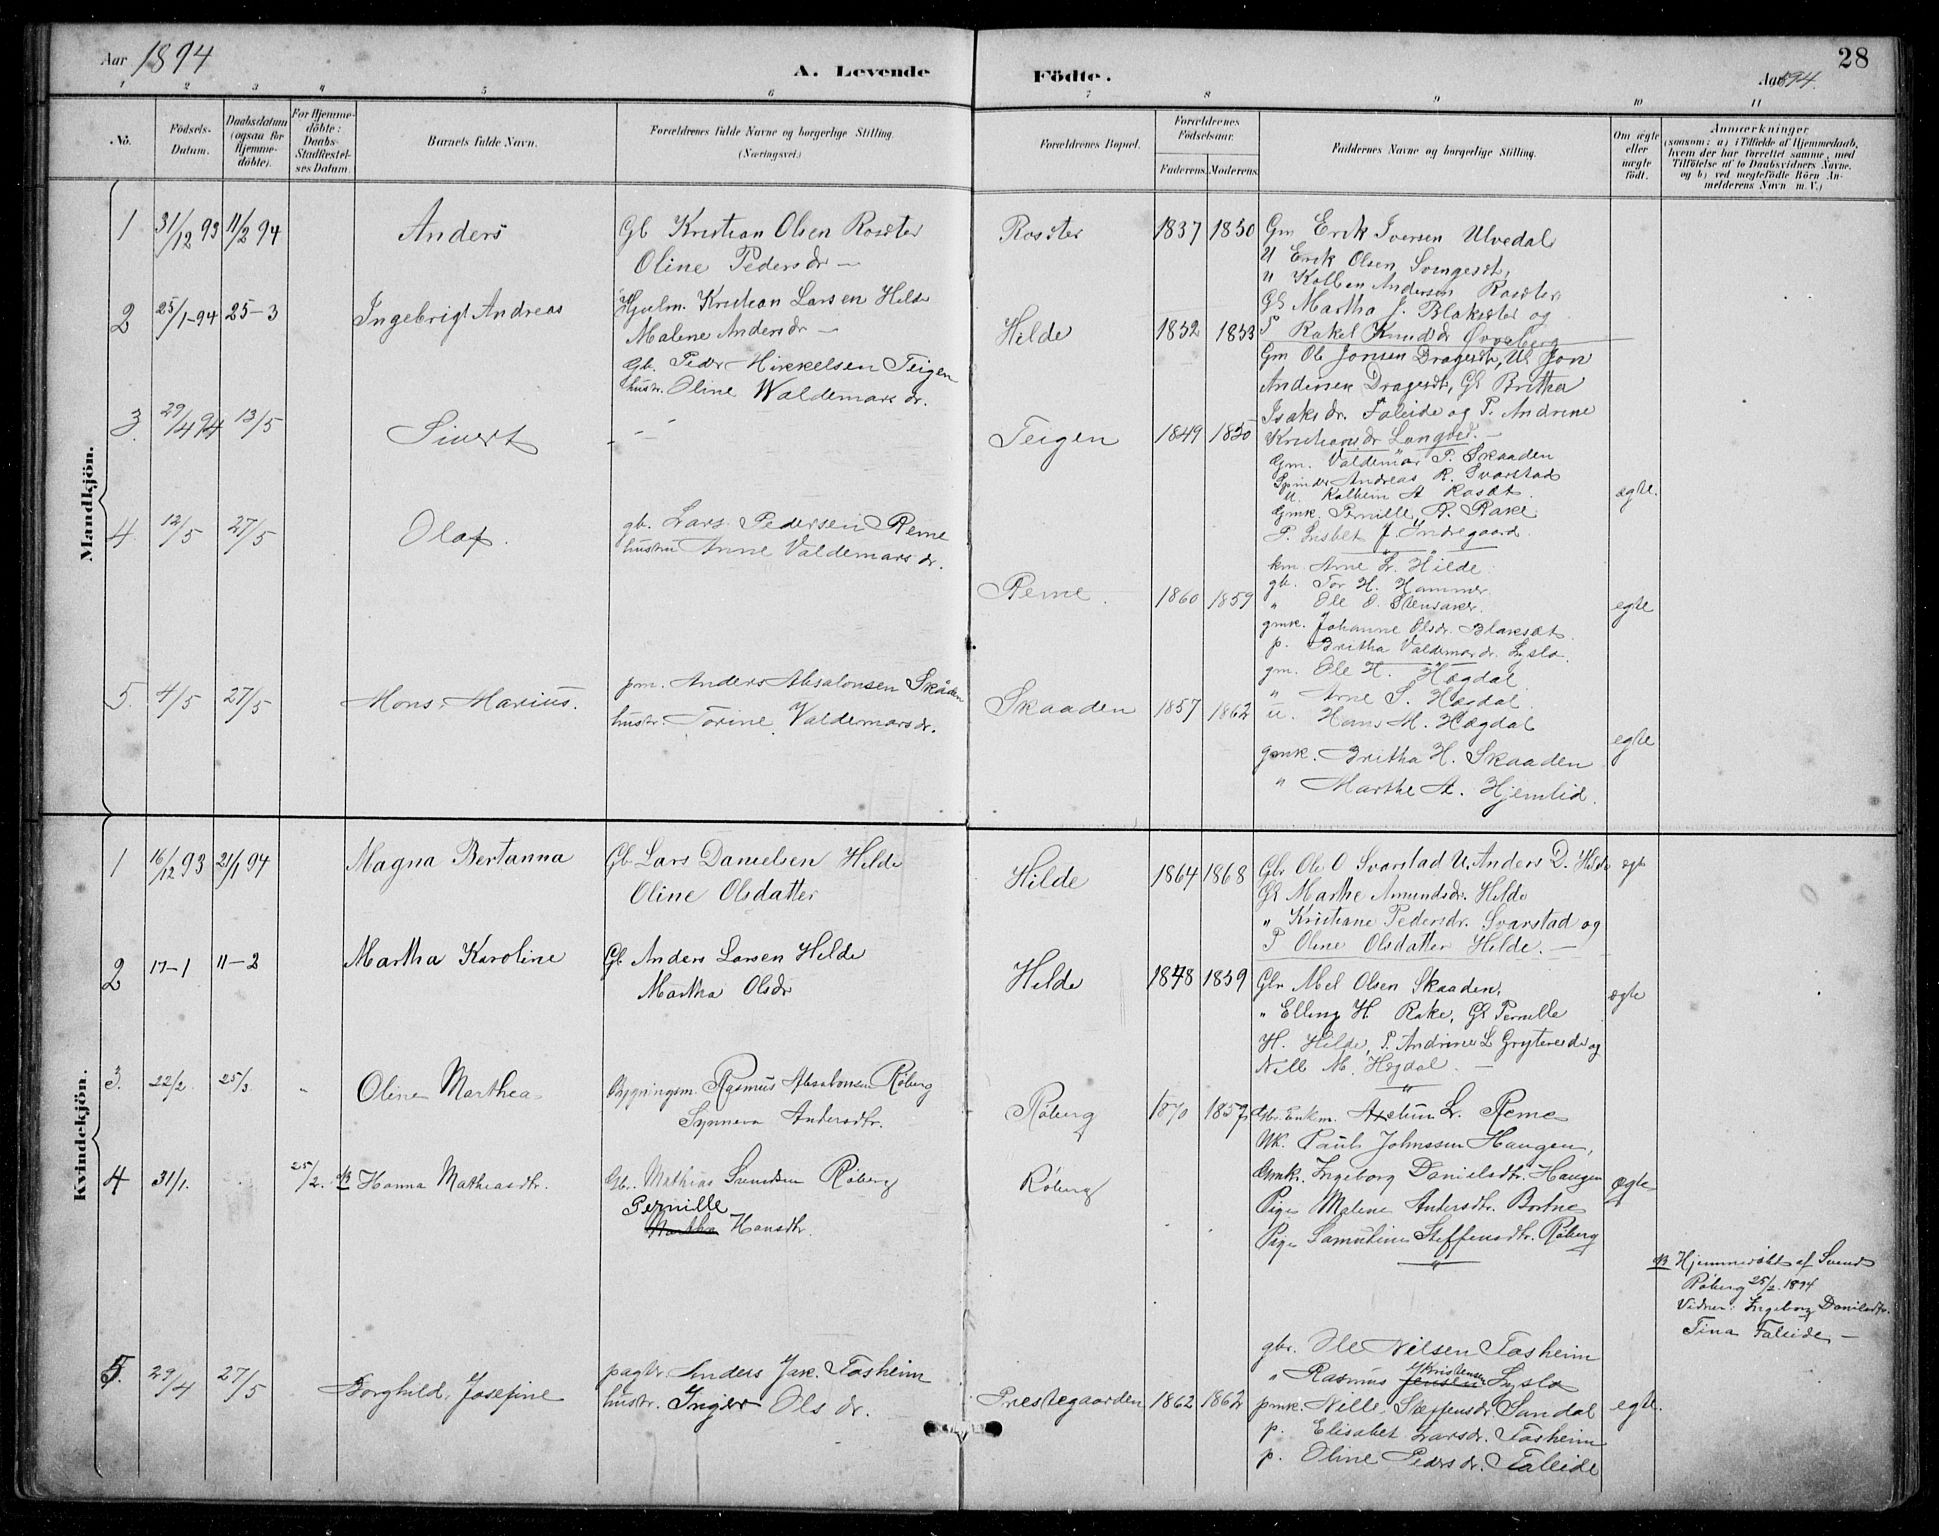 Aar 1894
A. Levende
Födte.
28
Aar 1894.
1 2 3 4 5 6 7 8 9 10 11
No.
Födsels-
Datum.
Daabsdatum
(ogsaa for
Hjemme-
döbte).
For Hjemme-
döbte:
Daabs-
Stadfæstel-
ses Datum.
Barnets fulde Navn.
Forældrenes fulde Navne og borgerlige Stilling.
(Næringsvei.)
Forældrenes Bopæl.
Forældrenes
Födselsaar.
Faderens. Moderens.
Faddernes Navne og borgerlige Stilling.
Om ægte
eller
uægte
födt.
Anmærkninger
(saasom: a) i Tilfælde af Hjemmedaab,
hvem der har forrettet samme, med
Tilföielse af to Daabsvidners Navne,
og b) ved uegtefödte Börn An-
melderens Navn m. V.)
Mandkjön.
1 31/12 93 11/2 94 Anders
Gb Kristian Olsen Rosæter
Oline Pedersdr —
Rosæter 1837 1850
Gm Erik Iversen Ulvedal
U Erik Olsen
U Kolbein Andersen Rosæter
Gk Martha J. Blaksæter og
P Rakel Knudsdr Øvreberg
2 25/1-94 25-3 Ingebrigt Andreas
Kristian Larsen Hilde
Malene Andersdr —
Hilde 1852 1853
Gm Ole Jonsen Dragesæt, Uk Jon
Andersen Dragesæt, Gk Brithe
Isaksdr. Faleide og P. Andrine
Kristiansdr Langved. —
3. 29/4 94 13/5 Sivert
Gb. Peder Mikkelsen Teigen
hustr. Oline Waldemarsdr.
Teigen 1849 1850
Gm. Valdemar P. Skaaden
Andreas R. Svarstad
u. Kolbein A Rosæt.
Gmk. Pernille A. Rake
P. Lisbet J. Indregaard.
ægte.
4. 12/5 27/5 Olaf.
gb. Lars Pedersen Reme
hustru Anne Valdemarsdr.
Reme. 1860 1859
km. Arne L. Hilde.
gb. Tor H. Hammer.
" Ole O. Stensaker.
gmk. Johanne Olsdr. Blaksæt.
p. Britha Valdemarsdr. Lyslo.
egte
5. 4/5 27/5 Mons Marius.
pm. Anders Absalonsen Skåden
hustr. Torine Valdemarsdr.
Skaaden 1857 1862
gm. Ole H. Høgdal.
" Arne S. Høgdal.
u. Hans M. Høgdal
gmk. Britha H. Skaaden
" Marthe A. Hjemlid.
egte
Kvindekjön.
1 16/12 93 21/1 94 Magna Bertanna
Gb Lars Danielsen Hilde
Oline Olsdatter
Hilde 1864 1868
Gbr Ole O Svarstad U. Anders D. Hilde
Gk Marthe Amundsdr. Hilde
" Kristiane Pedersdr. Svarstad og
P Oline Olsdatter Hilde. —
egt
2 17-1 11-2 Martha Karoline
Gb Anders Larsen Hilde
Martha Olsdr
Hilde 1848 1859
Gbr Abel Olsen Skaaden,
" Elling H. Rake, Gk Pernille
H. Hilde, P. Andrine L og
Nille M. Høgdal. —
ægte
3. 22/2. 25/3. " Oline Marthea
Bygningsm. Rasmus Absalonsen Røberg
Synneva Andersdtr.
Røberg 1870 1857
Gbr. Enkm. L. Reme
Uk. Paul Johnssen Haugen,
Gmk. Ingeborg Danielsdtr. Haugen
Pige Malene Andersdtr. Bortne
Pige Samuline Steffensdtr. Røberg
ægte
4 31/1. 25/2. Hanna Mathiasdtr.
Gbr. Mathias Svendsen Røberg
Pernille
Martha Hansdtr.
Røberg
Hjemmedøbt af Svend
Røberg 25/2. 1894
Vidner: Ingeborg Danielsdtr.
Tina Faleide —
5. 29/4 27/5 Borghild Josefine
Anders Jak. Tasheim
hustr. Inger Ols dr.
Prestegaarden 1862 1862
gbr. Ole Nilsen Tasheim
" Rasmus Jensen Kristensen Lyslo
pmk. Nille Steffensdr. Sandal
p. Elisabet Larsdr. Tasheim
p. Oline Pedersdr. Faleide
egte.